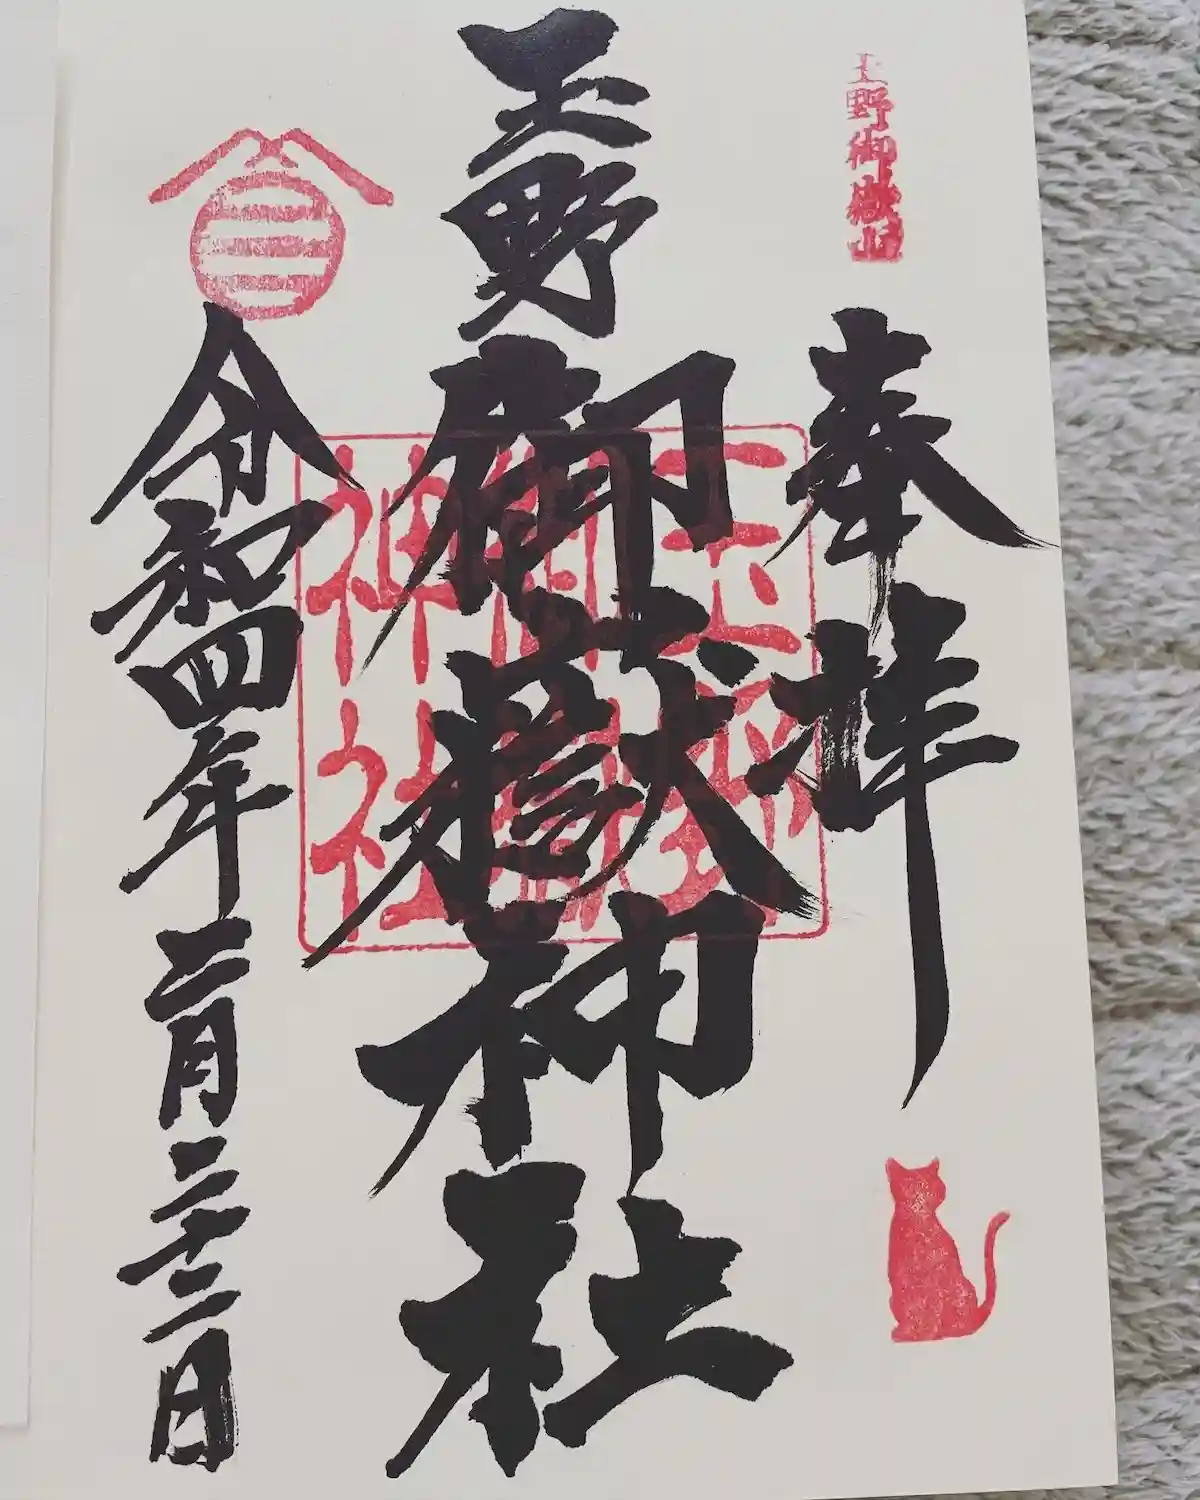 玉野御嶽山
奉拝
玉野御嶽神社
玉野
御嶽
神社
令和四年二月二十二日